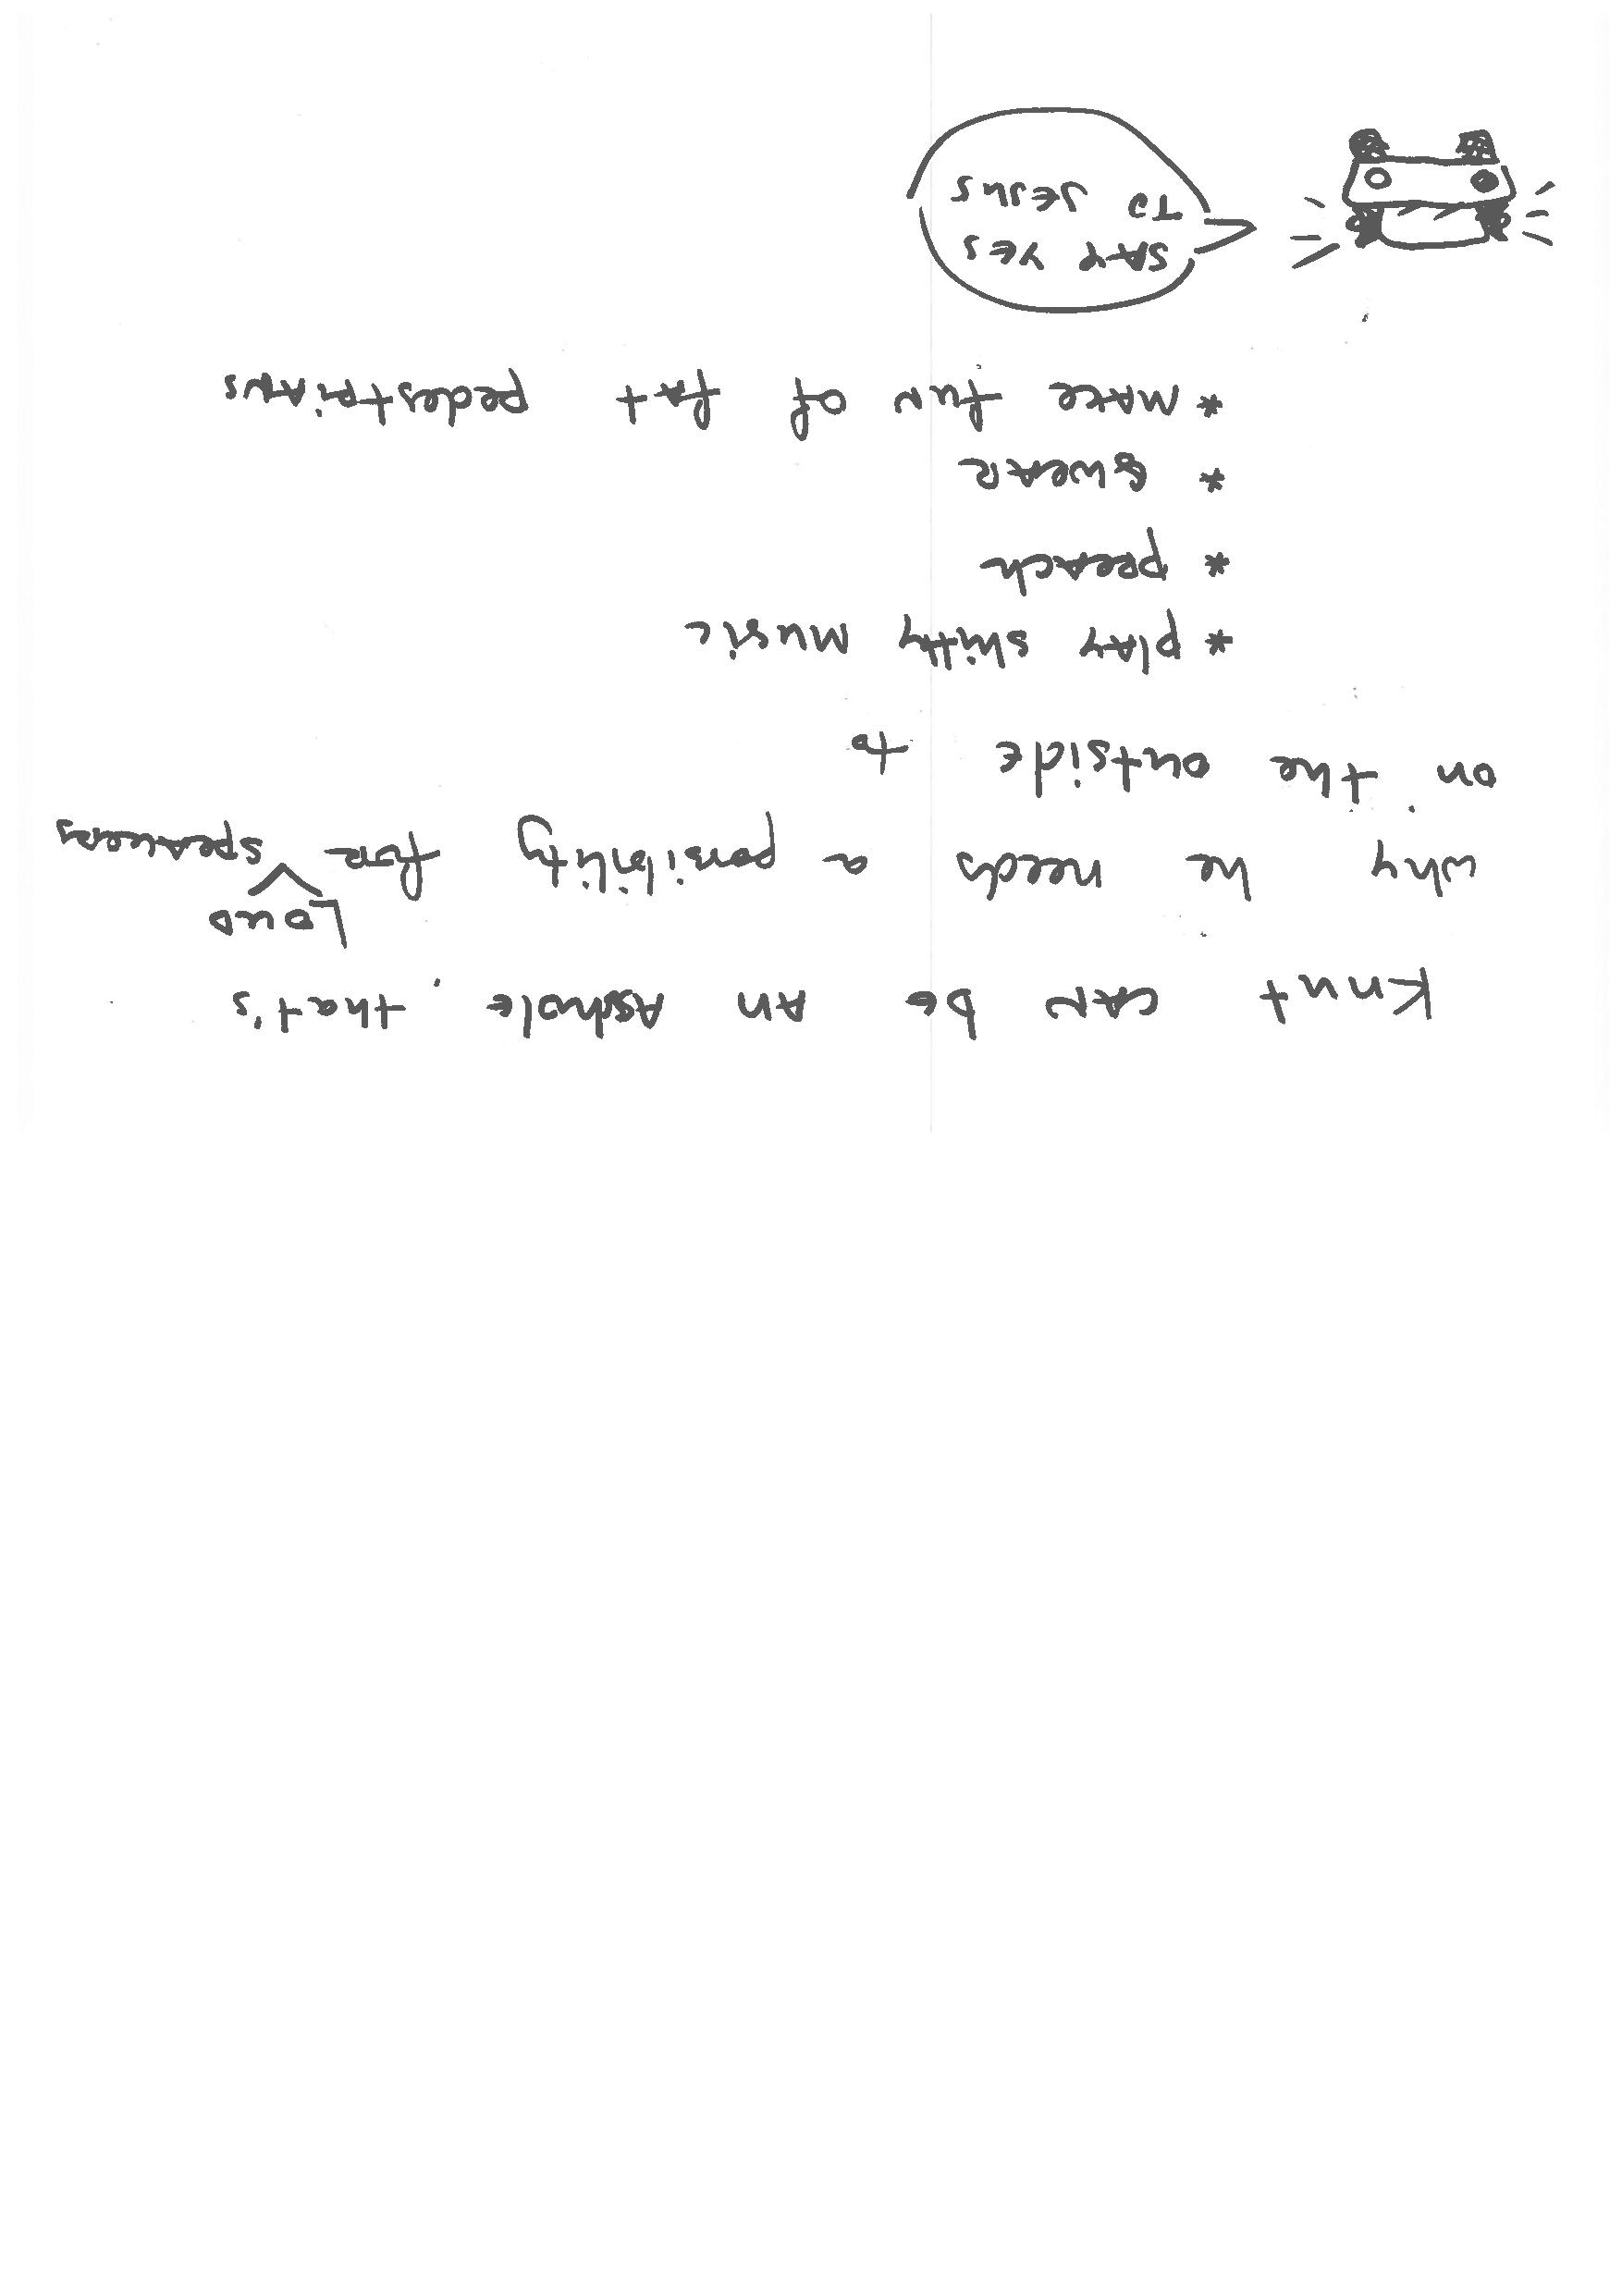 Knut can be an asshole, that's
why he needs a possibility for LOUD speakers
on the outside to
* play shitty music
* preach
* swear
* make fun of fat pedestrians
SAY YES
TO JESUS